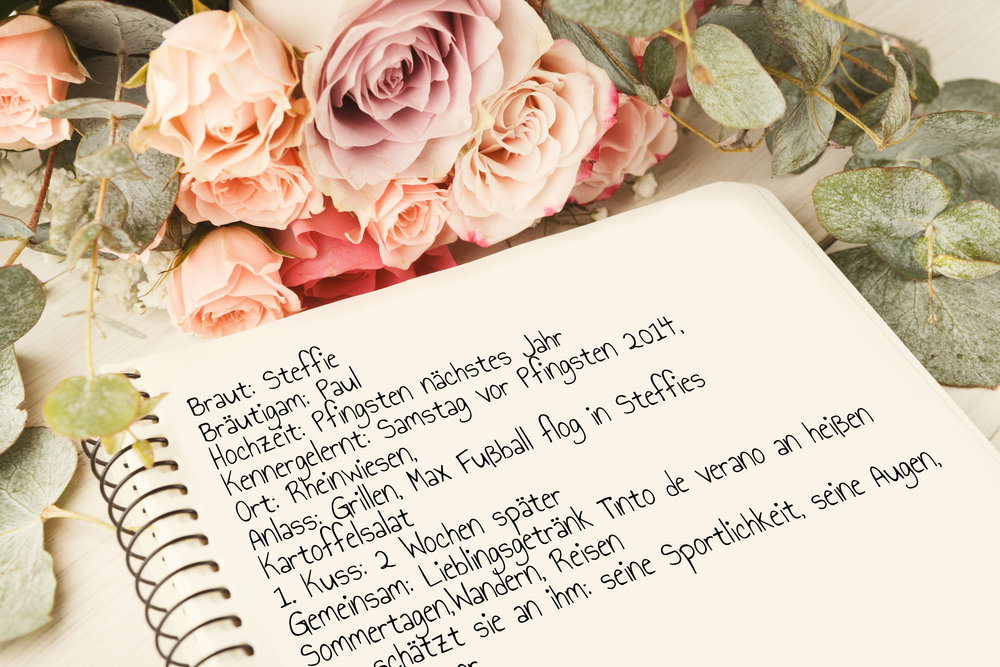 Braut: Steffie
Bräutigam: Paul
Hochzeit: Pfingsten nächstes Jahr
Kennergelernt: Samstag vor Pfingsten 2014,
Ort: Rheinwiesen,
Anlass: Grillen, Max Fußball flog in Steffies
Kartoffelsalat
1. Kuss: 2 Wochen später
Gemeinsam: Lieblingsgetränk Tinto de verano an heißen
Sommertagen,Wandern, Reisen
schätzt sie an ihm: seine Sportlichkeit, seine Augen,